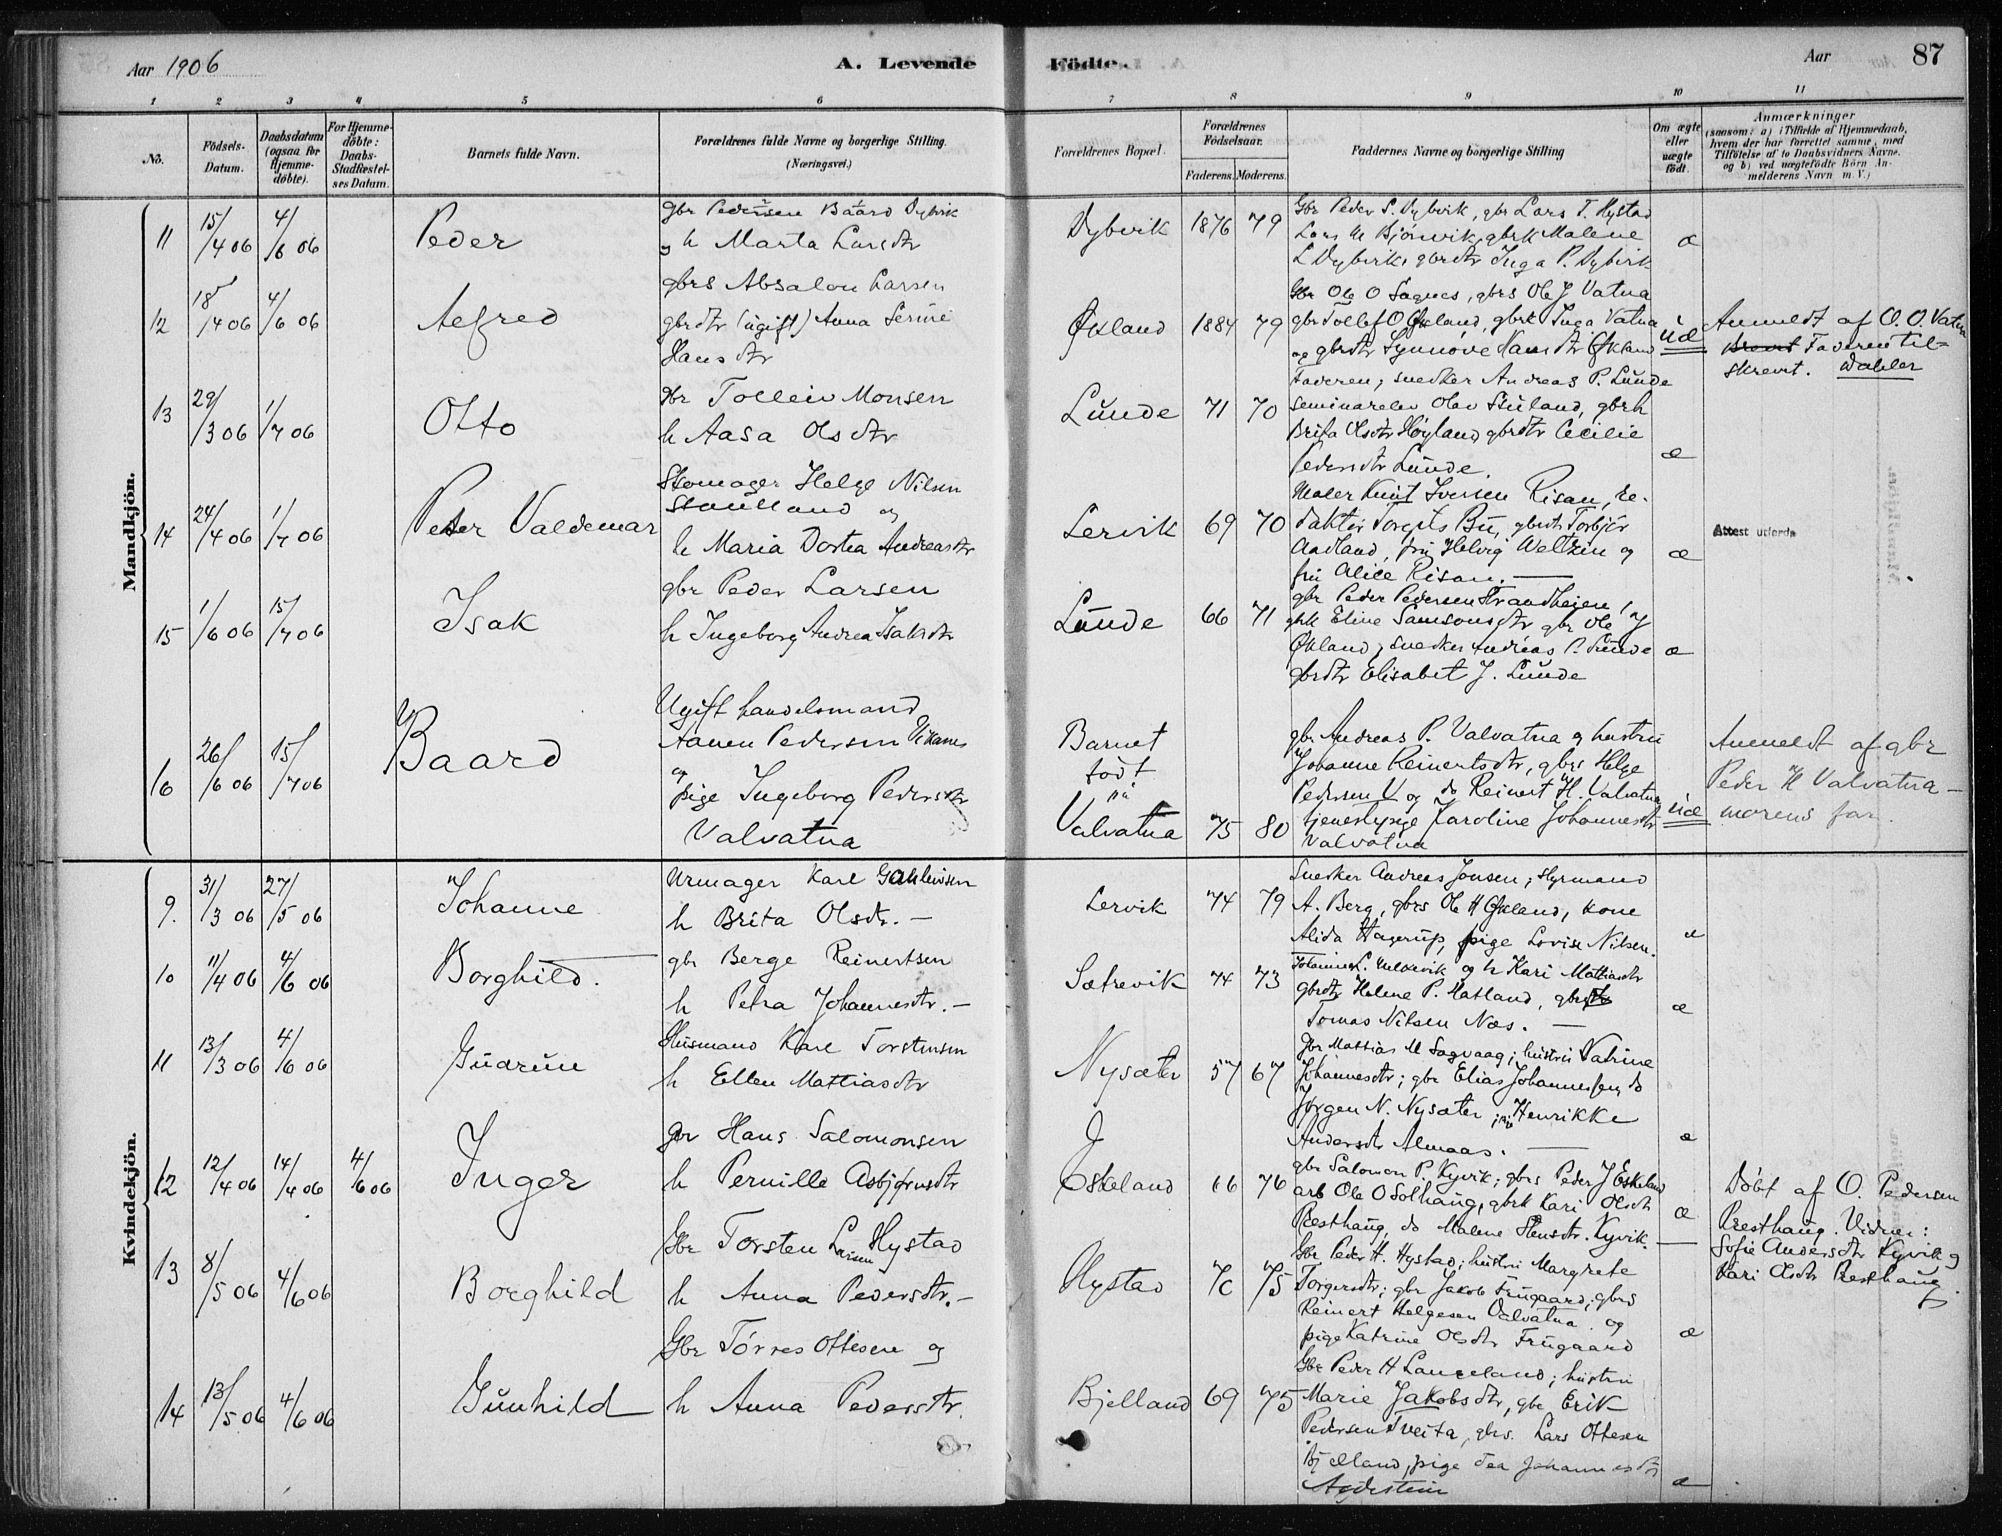 Aar 1906
A. Levende
Födte.
Aar
87
1 2 3 4 5 6 7 8 9 10 11
No.
Födsels-Datum.
Daabsdatum (ogsaa for Hjemme-döbte).
For Hjemme-döbte: Daabs-Stadfæstel-ses Datum.
Barnets fulde Navn.
Forældrenes fulde Navne og borgerlige Stilling. (Næringsvei.)
Forældrenes Bopæl.
Forældrenes Födselsaar.
Faderens. Moderens.
Faddernes Navne og borgerlige Stilling
Om ægte eller uægte födt.
Anmærkninger (saasom: a) i Tilfælde af Hjemmedaab, hvem der har forrettet samme, med Tilföielse af to Daabsvidners Navne. og b) ved uægtefödte Börn An-melderens Navn m. V.)
Mandkjön.
11 15/4 06 4/6 06 Peder
gbr Pedersen Baard Dybvik
og h Marta Larsdtr
Dybvik 1876 79
Gbr Peder S. Dybvik, gbr Lars T. Hystad
Lars M Bjørnvik, gbrk Malene
L Dybvik, gbrdtr Inga P. Dybvik
æ
12 18/4 06 4/6 06 Alfred
gbrs Absalon Larsen
gbrdtr (ugift) Anna Serine
Hansdtr
Økland 1884 79
Gbr Ole O Sagnes, gbrs Ole J Vatna
gbr Tollef O Økland, gbrk Inga Vatna
og gbrdtr Synnøve Hansdtr Økland
uæ
Anmeldt af O. O. Vatna
Faderen til-
skrevet. Dahler
13 29/3 06 1/7 06 Otto
gbr Tolleiv Monsen
h Aasa Olsdtr
Lunde 71 70
Faderen, snedker Andreas P. Lunde
seminarelev Olav Stuland, gbrk
Brita Olsdtr Høyland gbrdtr Cecilie
Pedersdtr Lunde.
æ
14 24/4 06 1/7 06 Peter Valdemar
Skomager Helge Nilsen
og
h Maria Dortea Andreasdtr
Lervik 69 70
Maler Knut Iversen Risan, re-
daktør Torgils Bu, gbrdtr Torbjør
Aadland, fru Helvig Weltzin og
fru Alice Risan. —
æ
Attest utferda
15 1/6 06 15/7 06 Isak
gbr Peder Larsen
h Ingeborg Andrea Isaksdtr
Lunde 66 71
gbr Peder Pedersen Strandheien,
gbrk Eline Samsonsdtr gbr Ole J
Økland, snedker Andreas P. Lunde
gbrdtr Elisabet J. Lunde
æ
16 26/6 06 15/7 06 Baard
Ugift handelsmand
Aanen Pedersen Vikanes
og
pige Ingeborg Pedersdtr
Valvatna
Barnet
født
på
Valvatna 75 80
gbr Andreas P. Valvatna og hustru
Johanne Reinertsdtr, gbrs Helge
Pedersen V og do Reinert H. Valvatna
tjenestepige Karoline Johannesdtr
Valvatna
uæ
Anmeldt af gbr
Peder H Valvatna —
morens far.
Kvindekjön.
9. 31/3 06 27/5 06 Johanne
Urmager Karl Gahlnisen
h Brita Olsdtr. —
Lervik 74 79
Snedker Andreas Jonsen, styrmand
A. Berg, gbrs Ole H Økland, kone
Alida Hagerup, pige Lovise Nilsen.
æ
10 11/4 06 4/6 06 Borghild.
gbr Berge Reinertsen
h Petra Johannesdtr. —
Sætrevik 74 73
Johannes L. og h Kari Mattiasdtr
gbrdtr Helene P. Hatland, gbrs
Tomas Nilsen Næs. —
æ
11 13/3 06 4/6 06 Gudrun
Husmand Karl Torstensen
h Ellen Mattiasdtr
Nysæter 57 67
Gbr Mattias M Sagvaag; hustru Katrine
Johannesdtr; gbr Elias Johannessen, do
Jørgen N. Nysæter, pige Henrikke
Andersdtr Almaas. —
æ
12 12/4 06 14/4 06 4/6 06 Inger
gbr Hans Salomonsen
h Pernille Asbjørnsdtr
Eskeland 66 76
gbr Salomon P. Kyvik; gbrs Peder J Eskeland
arb Ole O Solhaug, gbrk Kari Olsdtr
Presthaug, do Malene Hansdtr. Kyvik. —
æ
Döbt af O. Pedersen
Presthaug. Vidner:
Sofie Andersdtr Kyvik og
Kari Olsdtr Presthaug
13 8/5 06 4/6 06 Borghild
Gbr Torsten Larsen Hystad
h Anna Pedersdtr. —
Hystad 70 75
Gbr Peder H. Hystad; hustru Margrete
Torgersdtr; gbr Jakob Frugaard; gbrs
Reinert Helgesen Valvatna og
pige Katrine Olsdtr Frugaard
æ
14 13/5 06 4/6 06 Gunhild
Gbr Tørres Ottesen og
h Anna Pedersdtr.
Bjelland 69 75
Gbr Peder H Langeland; hustru
Marie Jakobsdtr, gbr Erik
Pedersen Tveita, gbrs. Lars Ottesen
Bjelland, pige Tea Johannesdtr
Agdestein
æ